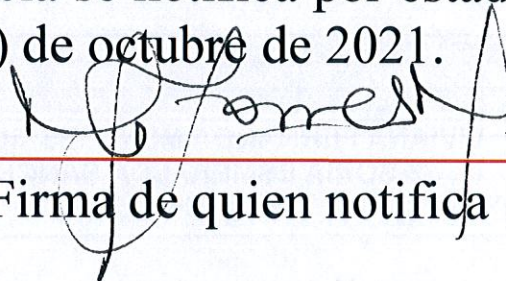 se notifica por estad
) de octubre de 2021.
Firma de quien notifica